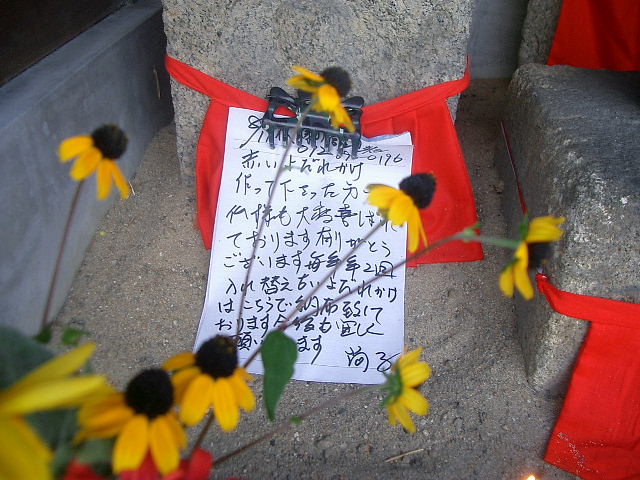 赤いよだれかけ
作って下さった方
仏様も大変喜ばれ
ております有りがとう
ございます毎年2回
入れ替え古いよだれかけ
はこちらで納め致して
おります今後も宜しく
願います